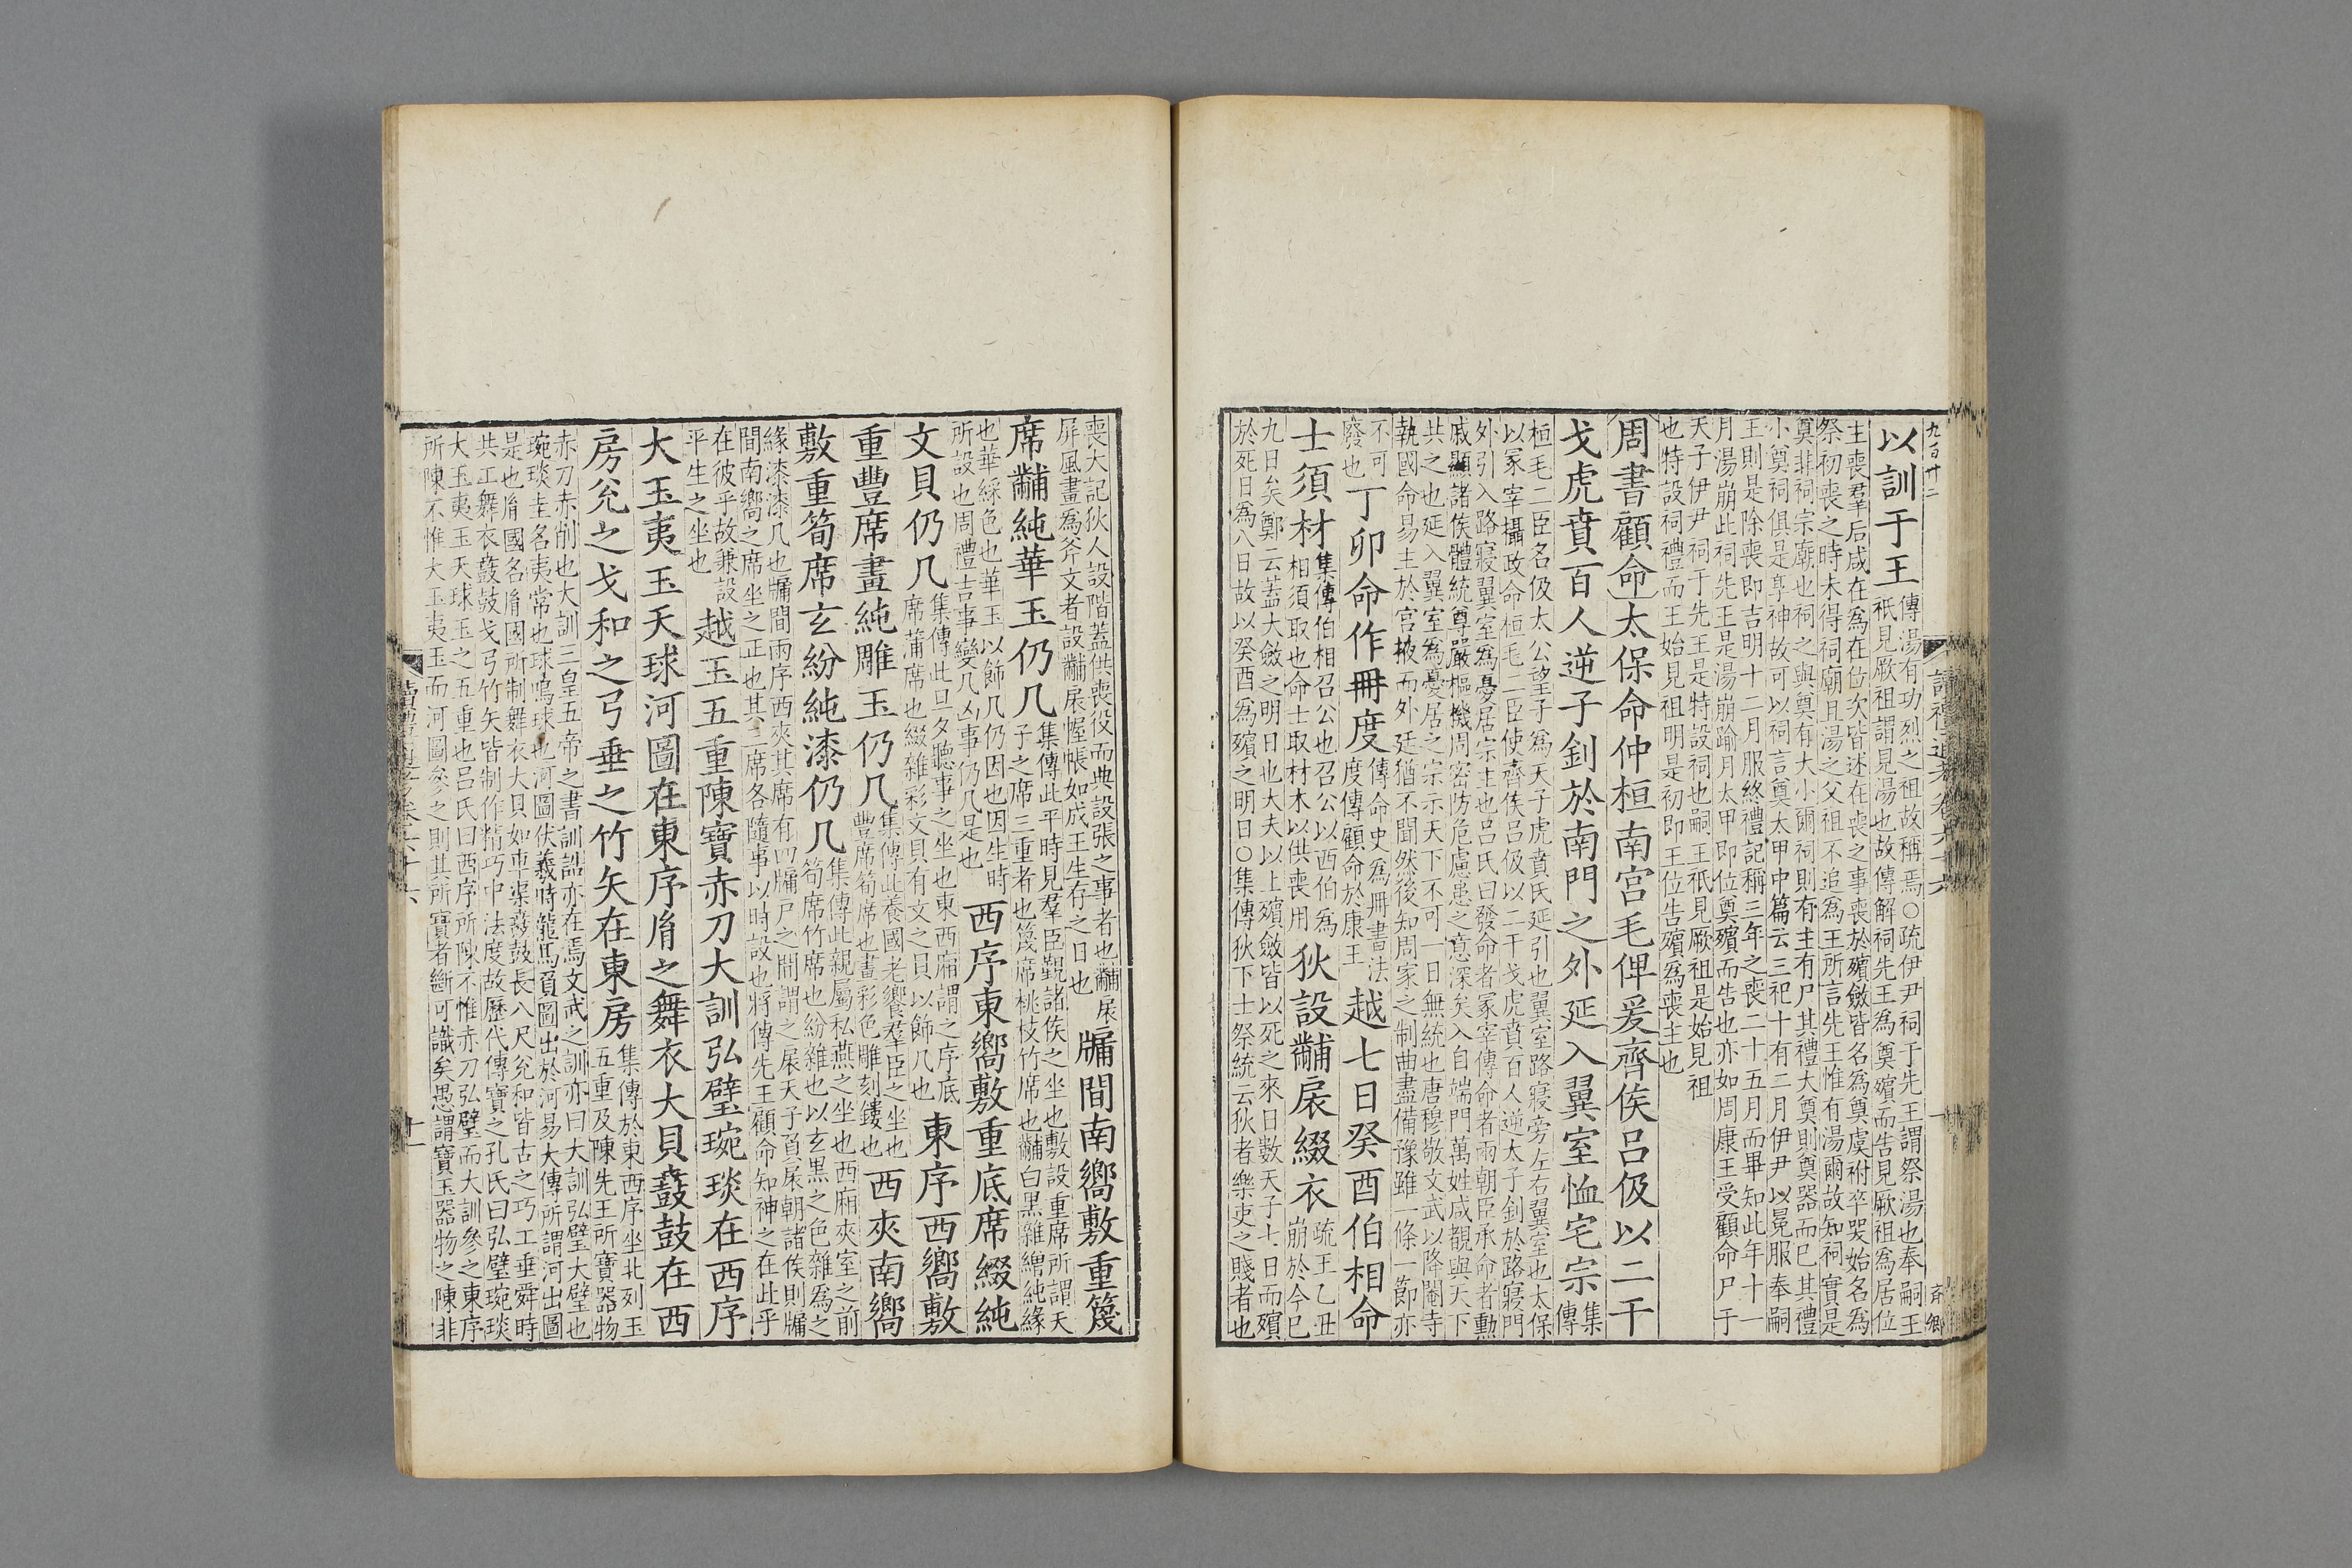 九百廿二
以訓于王
傳湯有功烈之祖故稱焉○疏伊尹祠于先王謂祭湯也奉嗣王
祇見厥祖謂見湯也故傳解祠先王為奠殯而告見厥祖為居位
主喪羣后咸在為在位次皆述在喪之事喪於殯斂皆名為奠虞祔卒哭始名為
祭初喪之時未得祠廟且湯之父祖不追為王所言先王惟有湯爾故知祠實是
奠非祠宗廟也祠之與奠有大小爾祠則有主有尸其禮大奠則奠器而已其禮
小奠祠俱是享神故可以祠言奠太甲中篇云三祀十有二月伊尹以冕服奉嗣
王則是除喪即吉明十二月服終禮記稱三年之喪二十五月而畢知此年十一
月湯崩此祠先王是湯崩踰月太甲即位奠殯而告也亦如周康王受顧命尸于
天子伊尹祠于先王是特設祠也嗣王祇見厥祖是始見祖
也特設祠禮而王始見祖明是初即王位告殯為喪主也
周書顧命太保命仲桓南宮毛俾爰齊侯呂伋以二干
戈虎賁百人逆子釗於南門之外延入翼室恤宅宗
集
傳
桓毛二臣名伋太公望子為天子虎賁氏延引也翼室路寢旁左右翼室也太保
以冢宰攝政命桓毛二臣使齊侯呂伋以二干戈虎賁百人逆太子釗於路寢門
外引入路寢翼室為憂居宗主也呂氏曰發命者冢宰傳命者兩朝臣承命者勳
戚顯諸侯體統尊嚴樞機周密防危慮患之意深矣入自端門萬姓咸覩與天下
共之也延入翼室為憂居之宗示天下不可一日無統也唐穆敬文武以降閹寺
執國命易主於宮掖而外廷猶不聞然後知周家之制曲盡備豫雖一條一節亦
不可
廢也
丁卯命作冊度
傳命史為冊書法
度傳顧命於康王
越七日癸酉伯相命
士須材
集傳伯相召公也召公以西伯為
相須取也命士取材木以供喪用
狄設黼扆綴衣
疏王乙丑
崩於今已
九日矣鄭云蓋大斂之明日也大夫以上殯斂皆以死之來日數天子七日而殯
於死日為八日故以癸酉為殯之明日○集傳狄下士祭統云狄者樂吏之賤者也
喪大記狄人設階蓋供喪役而典設張之事者也黼扆
屏風畫為斧文者設黼扆幄帳如成王生存之日也
牖間南嚮敷重篾
席黼純華玉仍几
集傳此平時見羣臣覲諸侯之坐也敷設重席所謂天
子之席三重者也篾席桃枝竹席也黼白黑雜繒純緣
也華綵色也華玉以飾几仍因也因生時
所設也周禮吉事變几凶事仍几是也
西序東嚮敷重底席綴純
文貝仍几
集傳此旦夕聽事之坐也東西廂謂之序底
席蒲席也綴雜彩文貝有文之貝以飾几也
東序西嚮敷
重豐席畫純雕玉仍几
集傳此養國老饗羣臣之坐也
豐席筍席也畫彩色雕刻鏤也
西夾南嚮
敷重筍席玄紛純漆仍几
集傳此親屬私燕之坐也西廂夾室之前
筍席竹席也紛雜也以玄黑之色雜為之
緣漆漆几也牖間兩序西夾其席有四牖戶之間謂之扆天子負扆朝諸侯則牖
間南嚮之席坐之正也其三席各隨事以時設也將傳先王顧命知神之在此乎
在彼乎故兼設
平生之坐也
越玉五重陳寶赤刀大訓弘璧琬琰在西序
大玉夷玉天球河圖在東序胤之舞衣大貝鼖鼓在西
房兊之戈和之弓垂之竹矢在東房
集傳於東西序坐北列玉
五重及陳先王所寶器物
赤刀赤削也大訓三皇五帝之書訓誥亦在焉文武之訓亦曰大訓弘璧大璧也
琬琰圭名夷常也球鳴球也河圖伏羲時龍馬負圖出於河易大傳所謂河出圖
是也胤國名胤國所制舞衣大貝如車渠鼖鼓長八尺兊和皆古之巧工垂舜時
共工舞衣鼖鼓戈弓竹矢皆制作精巧中法度故歷代傳寶之孔氏曰弘璧琬琰
大玉夷玉天球玉之五重也呂氏曰西序所陳不惟赤刀弘璧而大訓參之東序
所陳不惟大玉夷玉而河圖參之則其所寶者斷可識矣愚謂寶玉器物之陳非
讀禮通考卷六十六